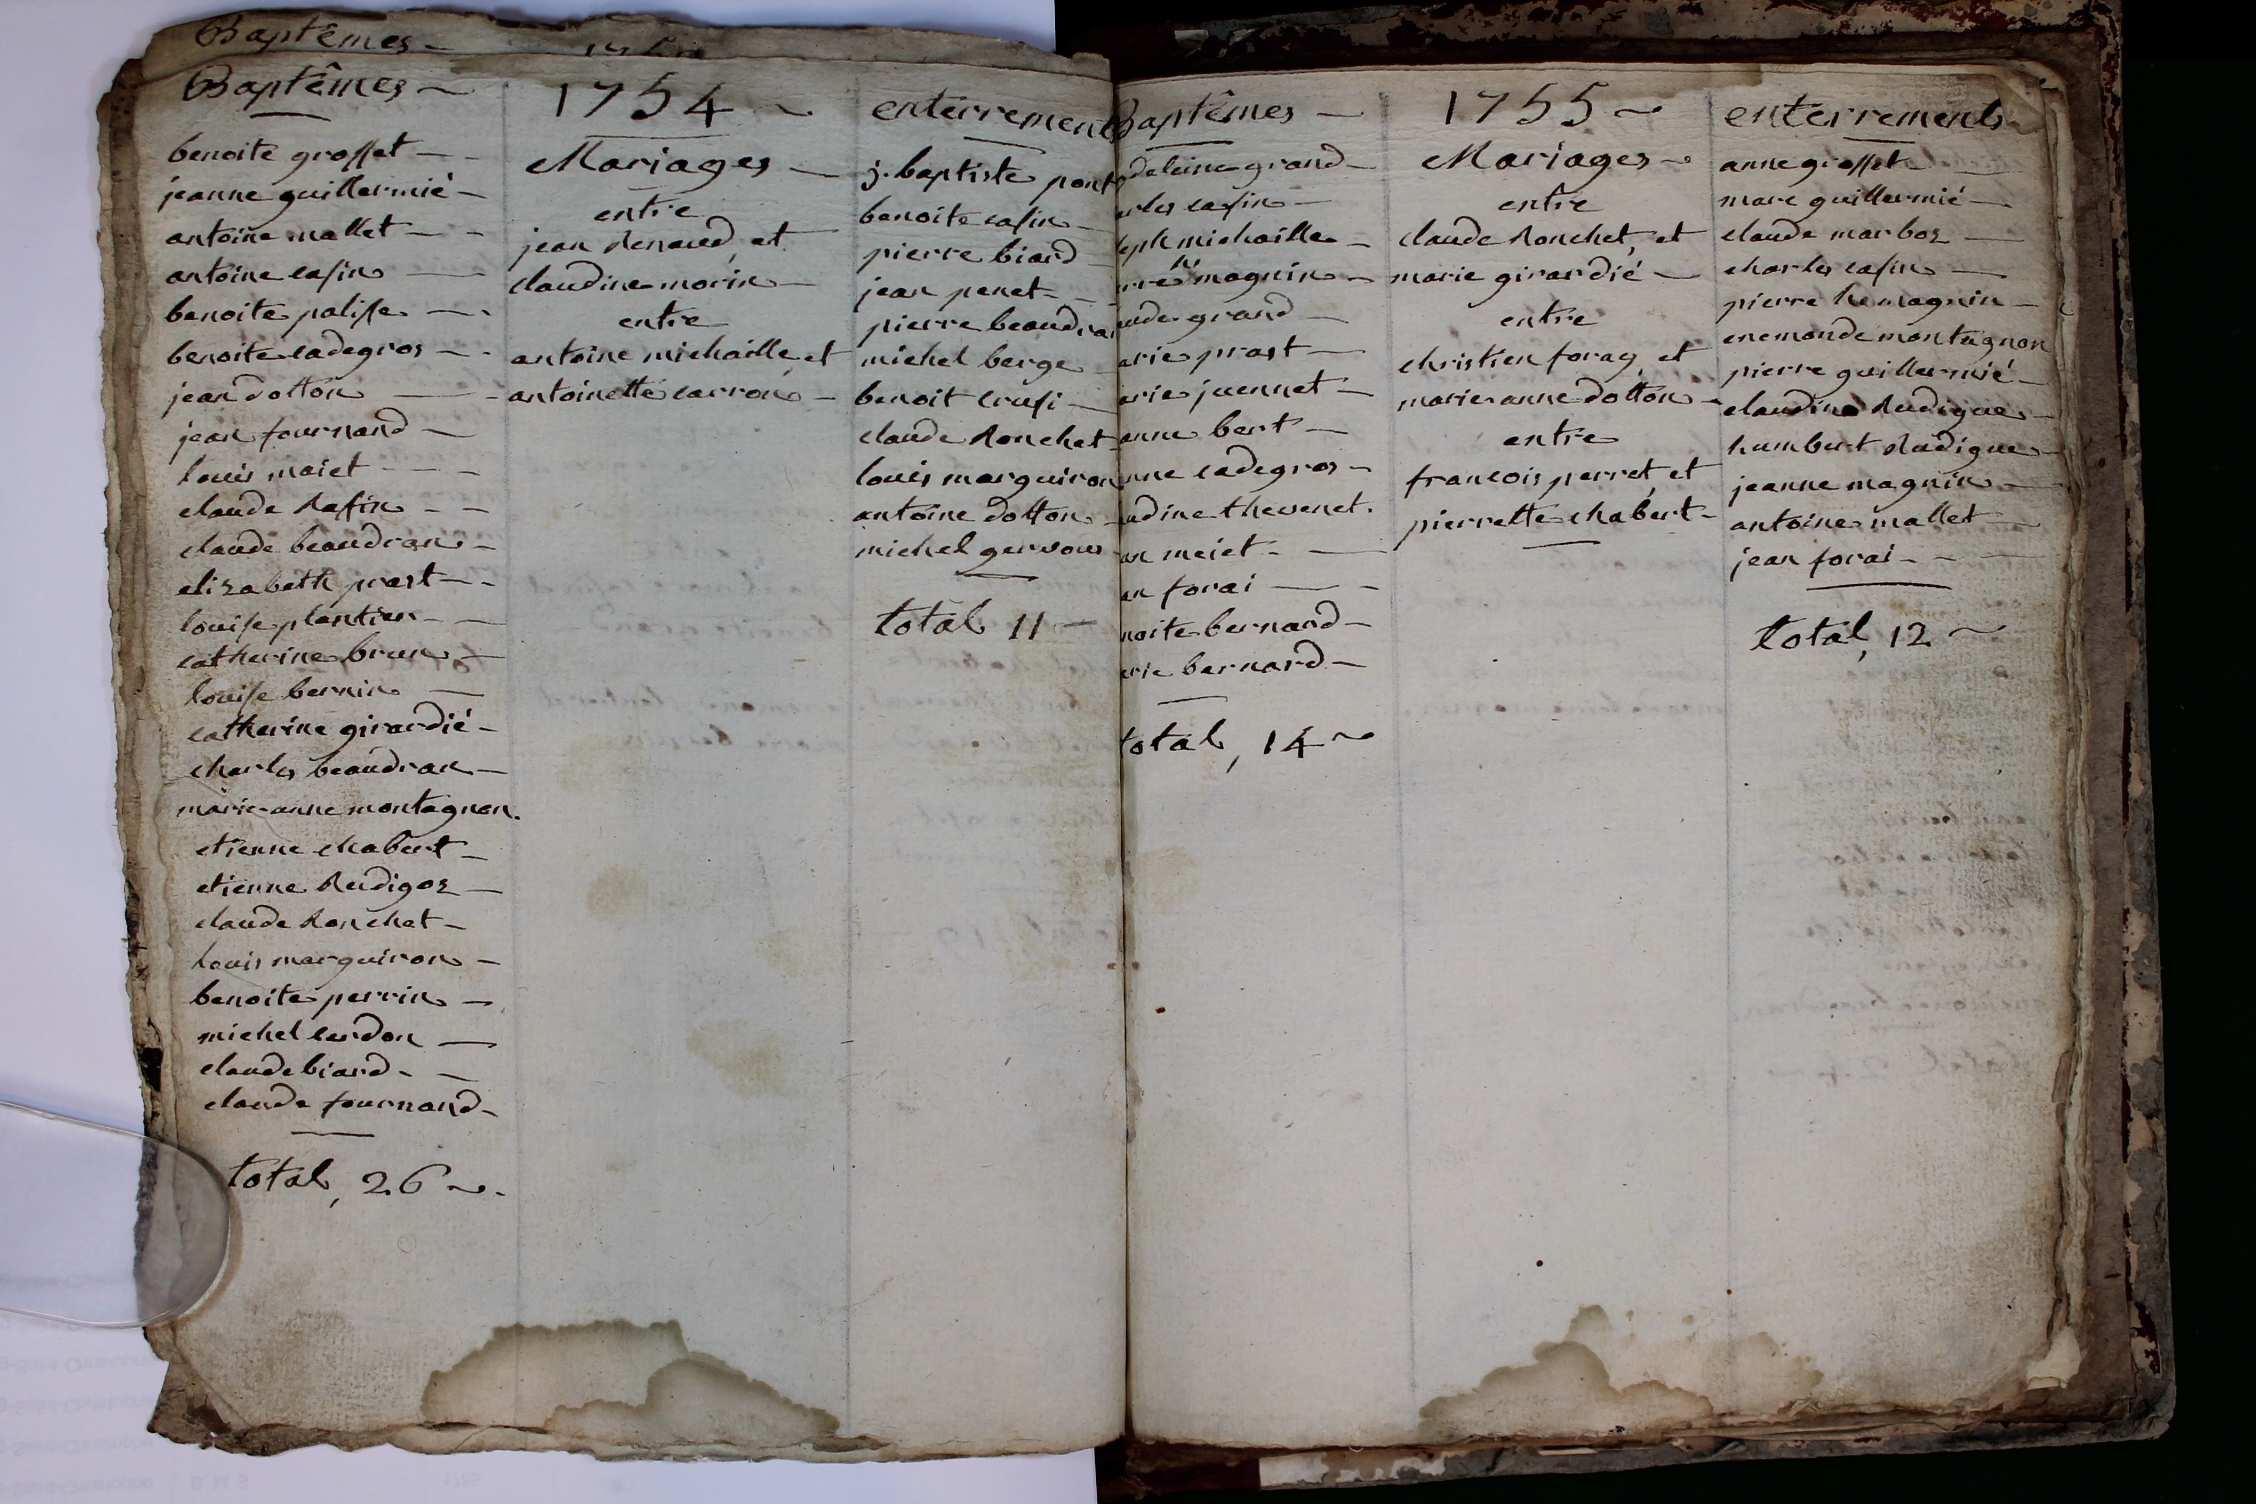 Baptêmes
Baptêmes
benoite grosset
jeanne guillermié
antoine mallet
antoine casin
benoite palisse
benoite cadegros
jean dotton
jean fournand
louis maiet
claude rafin
claude beaudran
elizabeth prast
louise plantier
catherine brun
louise bernin
catherine girardié
charles beaudran
marie anne montagnon.
etienne chabert
etienne rudigoz
claude ronchet
louis marguiron
benoite perrin
michel cerdon
claude biard
claude fournand
total, 26
1754
Mariages
entre
jean renaud, et
claudine morin
entre
antoine michaille, et
antoinette carron
enterrements
j. baptiste
benoite casin
pierre biard
jean penet
pierre
michel berge
benoit crusi
claude ronchet
louis marguiron
antoine dotton
michel
total 11
Baptêmes
deleine grand
rles casin
seph michaille
magnin
ude grand
arie prast
arie juennet
anne bert
nne cadegros
udine thevenet.
an meiet
an forai
noite bernard
rie bernard
total, 14
1755
Mariages
entre
claude ronchet, et
marie girardié
entre
christien foray, et
marie anne dotton
entre
francois perret, et
pierrette chabert
enterrements
anne grosset
marc guillermié
claude marboz
charles casin
pierre magnin
enemonde montagnon
pierre guillermié
claudine rudigue
humbert rudigue
jeanne magnin
antoine mallet
jean forai
total, 12